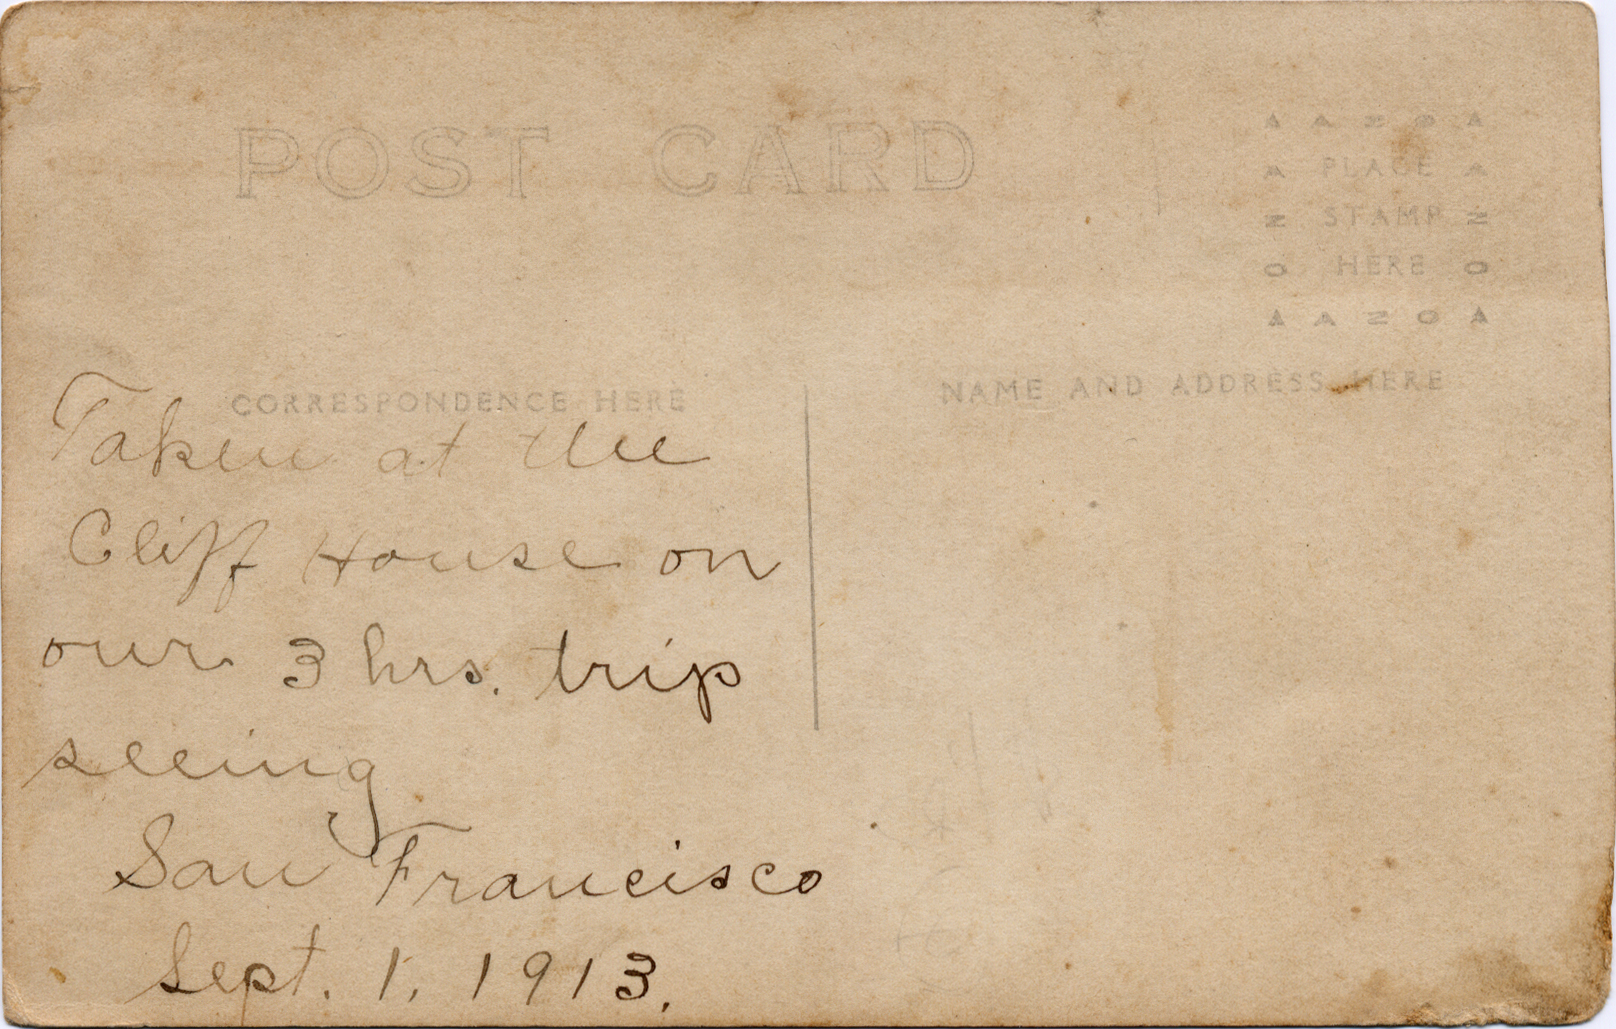 POST CARD
AZOA
PLACE
STAMP
HERE
AZOA
CORRESPONDENCE HERE
NAME AND ADDRESS HERE
Taken at the
Cliff House on
our 3 hrs. trip
seeing
San Francisco
Sept. 1, 1913.